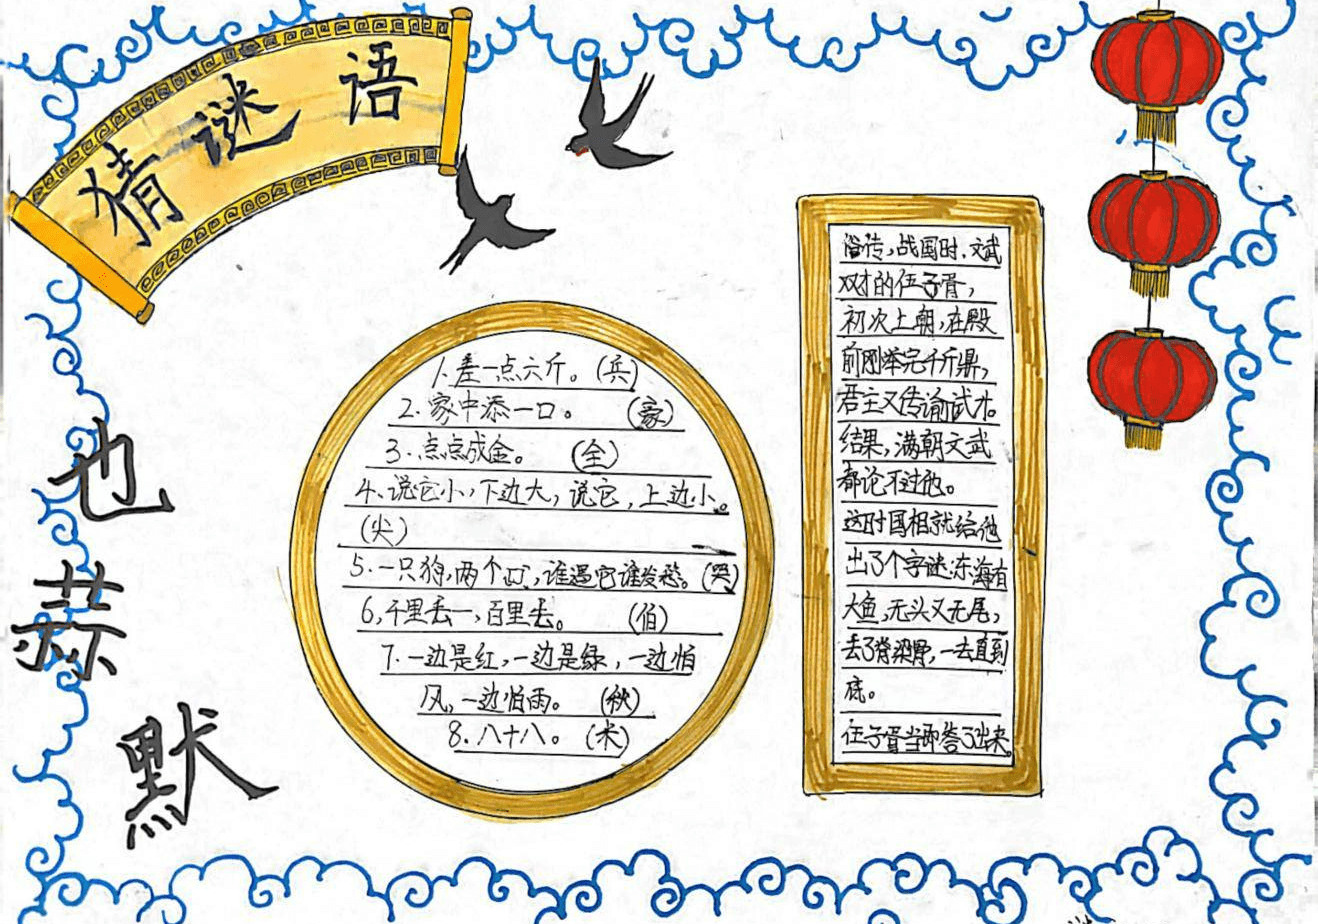 猜谜语
1.差一点六斤。(兵)
2.家中添一口。(豪)
3.点点成金。(全)
4.说它小,下边大,说它,上边小。
(尖)
5.一只狗,两个口,谁遇它谁发愁。(哭)
6.千里丢一,百里丢。(伯)
7.一边是红,一边是绿,一边怕
风,一边怕雨。(秋)
8.八十八。(米)
俗传,战国时,文武
双才的伍子胥,
初次上朝,在殿
前刚举完千斤鼎,
君主又传谕试才。
结果,满朝文武
都论不过他。
这时国相就给他
出了个字谜:东海有
大鱼,无头又无尾,
丢了脊梁骨,一去直到
底。
伍子胥当即答了出来。
也
蒜
默